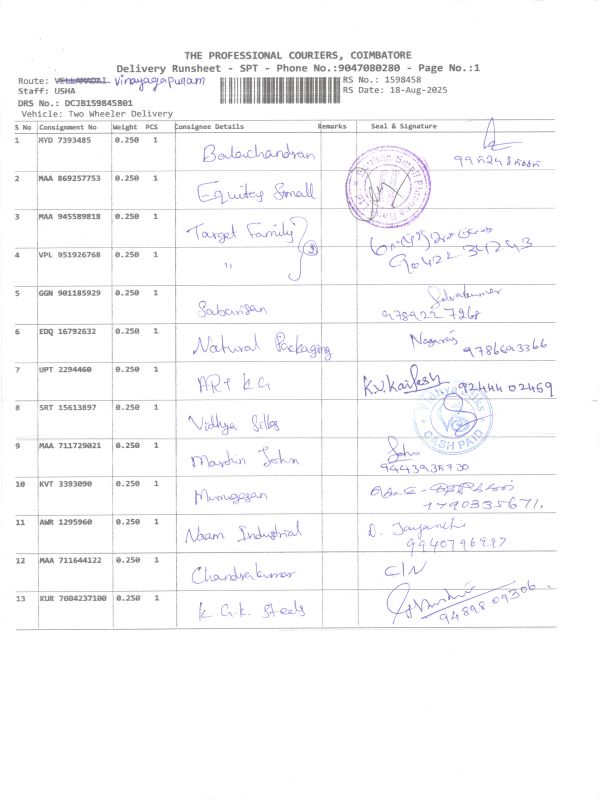 THE PROFESSIONAL COURIERS, COIMBATORE
Delivery Runsheet - SPT - Phone No.:9047080280 - Page No.:1
Route: VELLAMADAI Vinayagapuram
RS No.: 1598458
Staff: USHA
RS Date: 18-Aug-2025
DRS No.: DCJB159845801
Vehicle: Two Wheeler Delivery
S No Consignment No Weight PCS Consignee Details Remarks Seal & Signature
1 MYD 7393485 0.250 1 Balachandran
2 MAA 869257753 0.250 1 Equitey Small
3 MAA 945589818 0.250 1 Target Family
90422 34243
4 VPL 951926768 0.250 1 "
5 GGN 901185929 0.250 1 Sabarisan Selvakumar
9789227268
6 EDQ 16792632 0.250 1 Natural Packaging Nagaraj
9786693366
7 UPT 2294460 0.250 1 K.V. Kailash 92444 02469
8 SRT 15613897 0.250 1 Vidhya Silks
CASH PAID
9 MAA 711729021 0.250 1 John
10 KVT 3393090 0.250 1 Murugesan
1790335671.
11 AWR 1295960 0.250 1 Naam Industrial D. Jayanthi
9940796997
12 MAA 711644122 0.250 1 Chandrakumar C/N
13 KUR 7004237100 0.250 1 K.G.K. Steels
94898 09306